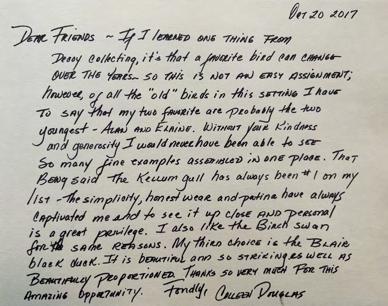 Oct 20 2017
Dear Friends ~ If I learned one thing from
Decoy collecting, it's that a favorite bird can change
over the years - so this is not an easy assignment;
However, of all the "old" birds in this setting I have
to say that my two favorite are probably the two
youngest - Alan and Elaine. Without your kindness
and generosity I would never have been able to see
so many fine examples assembled in one place. That
Being said The Kellum gull has always been #1 on my
list - the simplicity, honest wear and patina have always
captivated me and to see it up close and personal
is a great privilege. I also like the Birch swan
for the same reasons. My third choice is the Blair
black duck. It is beautiful and so striking as well as
Beautifully proportioned. Thanks so very much for this
Amazing opportunity. Fondly, Colleen Douglas